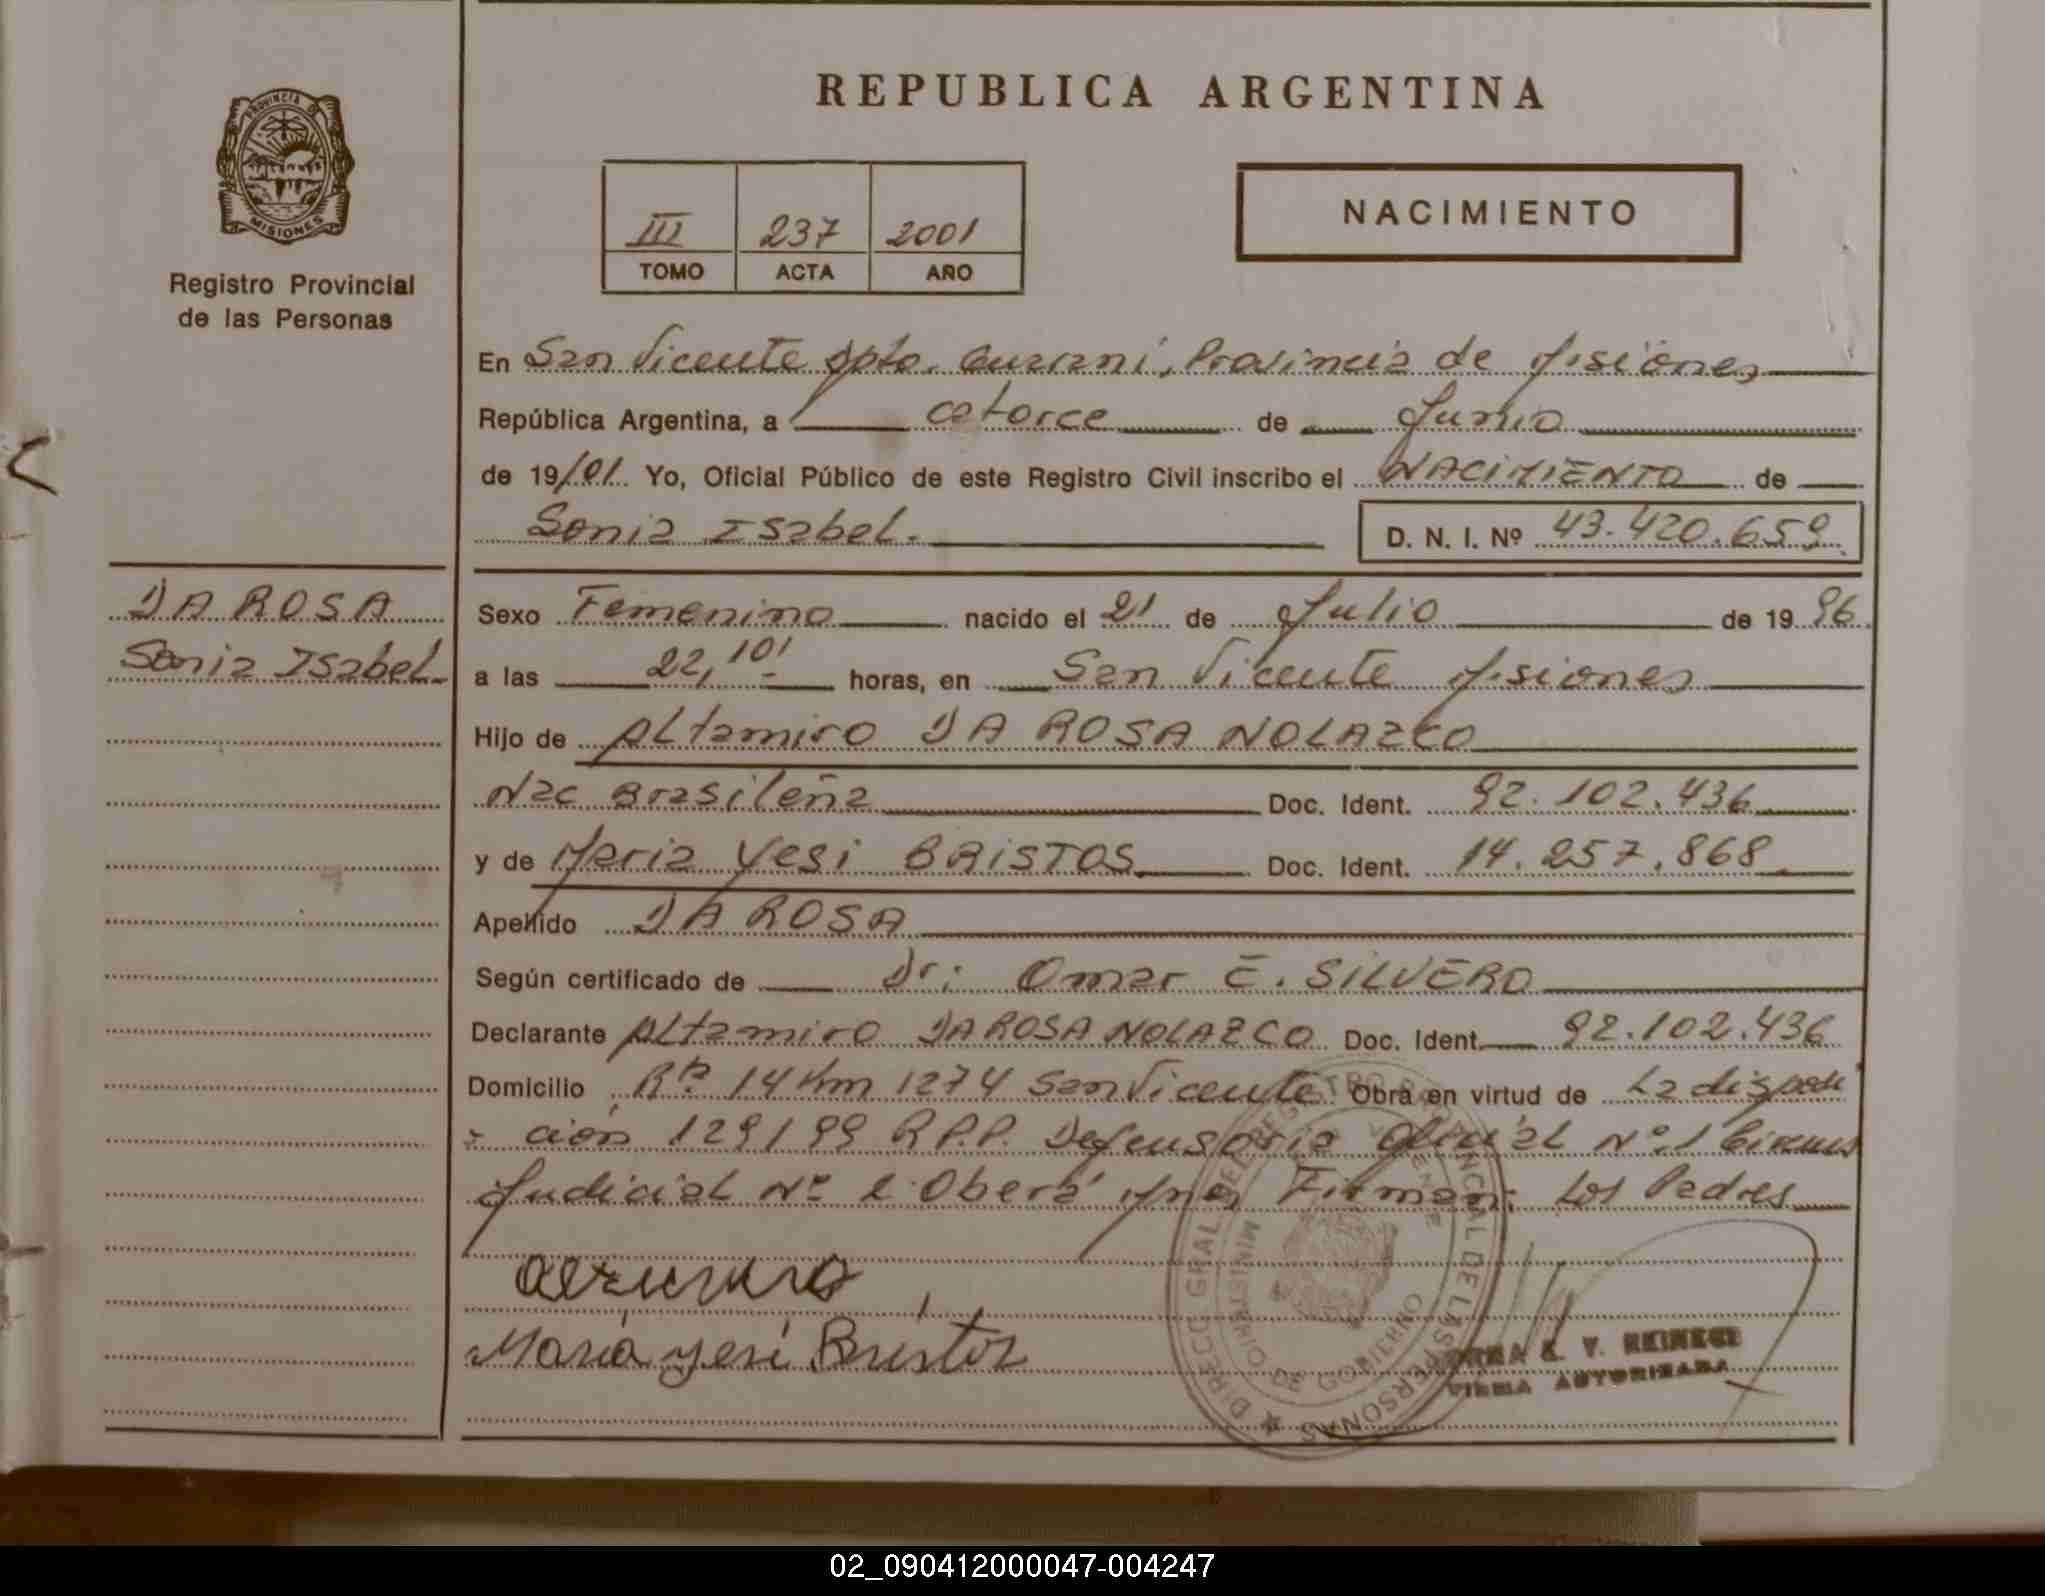 REPUBLICA ARGENTINA
PROVINCIA DE
MISIONES
Registro Provincial
de las Personas
III 237 2001
TOMO ACTA AÑO
NACIMIENTO
En San Vicente Dpto. Guaraní, Provincia de Misiones
República Argentina, a catorce de Junio
de 19/01. Yo, Oficial Público de este Registro Civil inscribo el NACIMIENTO de
Sonia Isabel. D. N. I. Nº 43.420.659
DA ROSA
Sonia Isabel
Sexo Femenino nacido el 21 de Julio de 1996.
a las 22,10' horas, en San Vicente Misiones
Hijo de Altamiro DA ROSA NOLAZCO
Nac Brasileña Doc. Ident. 92.102.436
y de Maria Yesi BRISTOS Doc. Ident. 14.257.868
Apellido DA ROSA
Según certificado de Dr. Omar E. SILVERO
Declarante Altamiro DA ROSA NOLAZCO Doc. Ident. 92.102.436
Domicilio Rta 14 Km 1274 San Vicente Obra en virtud de La disposi
- ción 129/99 R.P.P. Defensoria Oficial Nº 1 Circuns
Judicial Nº 2 Oberá Mnes Firman: Los Padres
Maria yesi Bristos
DIRECC GRAL DEL REGISTRO PROVINCIAL DE LAS PERSONAS
MINISTERIO DE GOBIERNO
V. REINECE
FIRMA AUTORIZADA
02_090412000047-004247